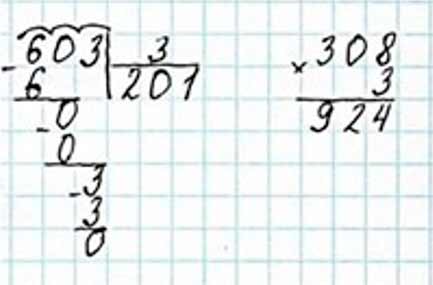 603 3
- 6 201
0
- 0
3
- 3
0
308
× 3
924